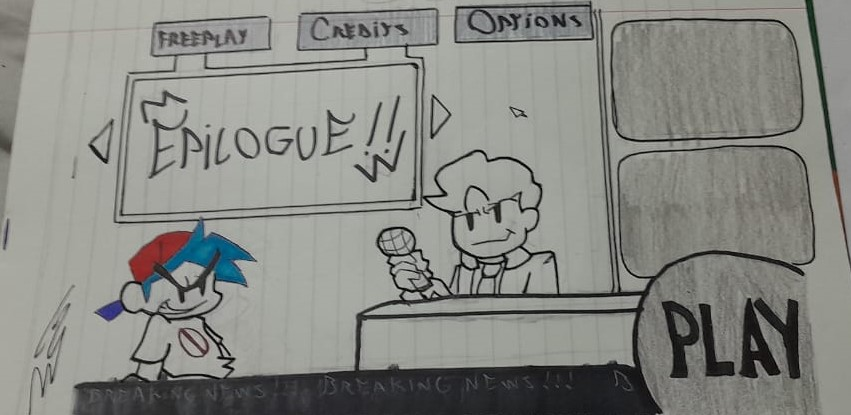 FREEPLAY
CREDITS
OPTIONS
EPILOGUE!!
PLAY
BREAKING NEWS!! BREAKING NEWS!!!